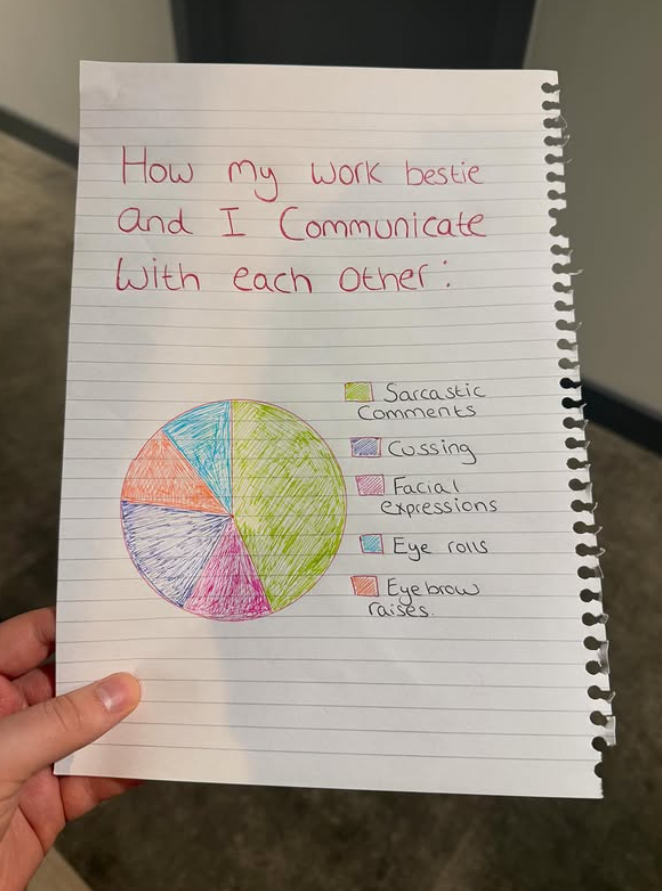 How my work bestie
And I Communicate
With each other:
Sarcastic
Comments
Cussing
Facial
expressions
Eye rolls
Eyebrow
raises.